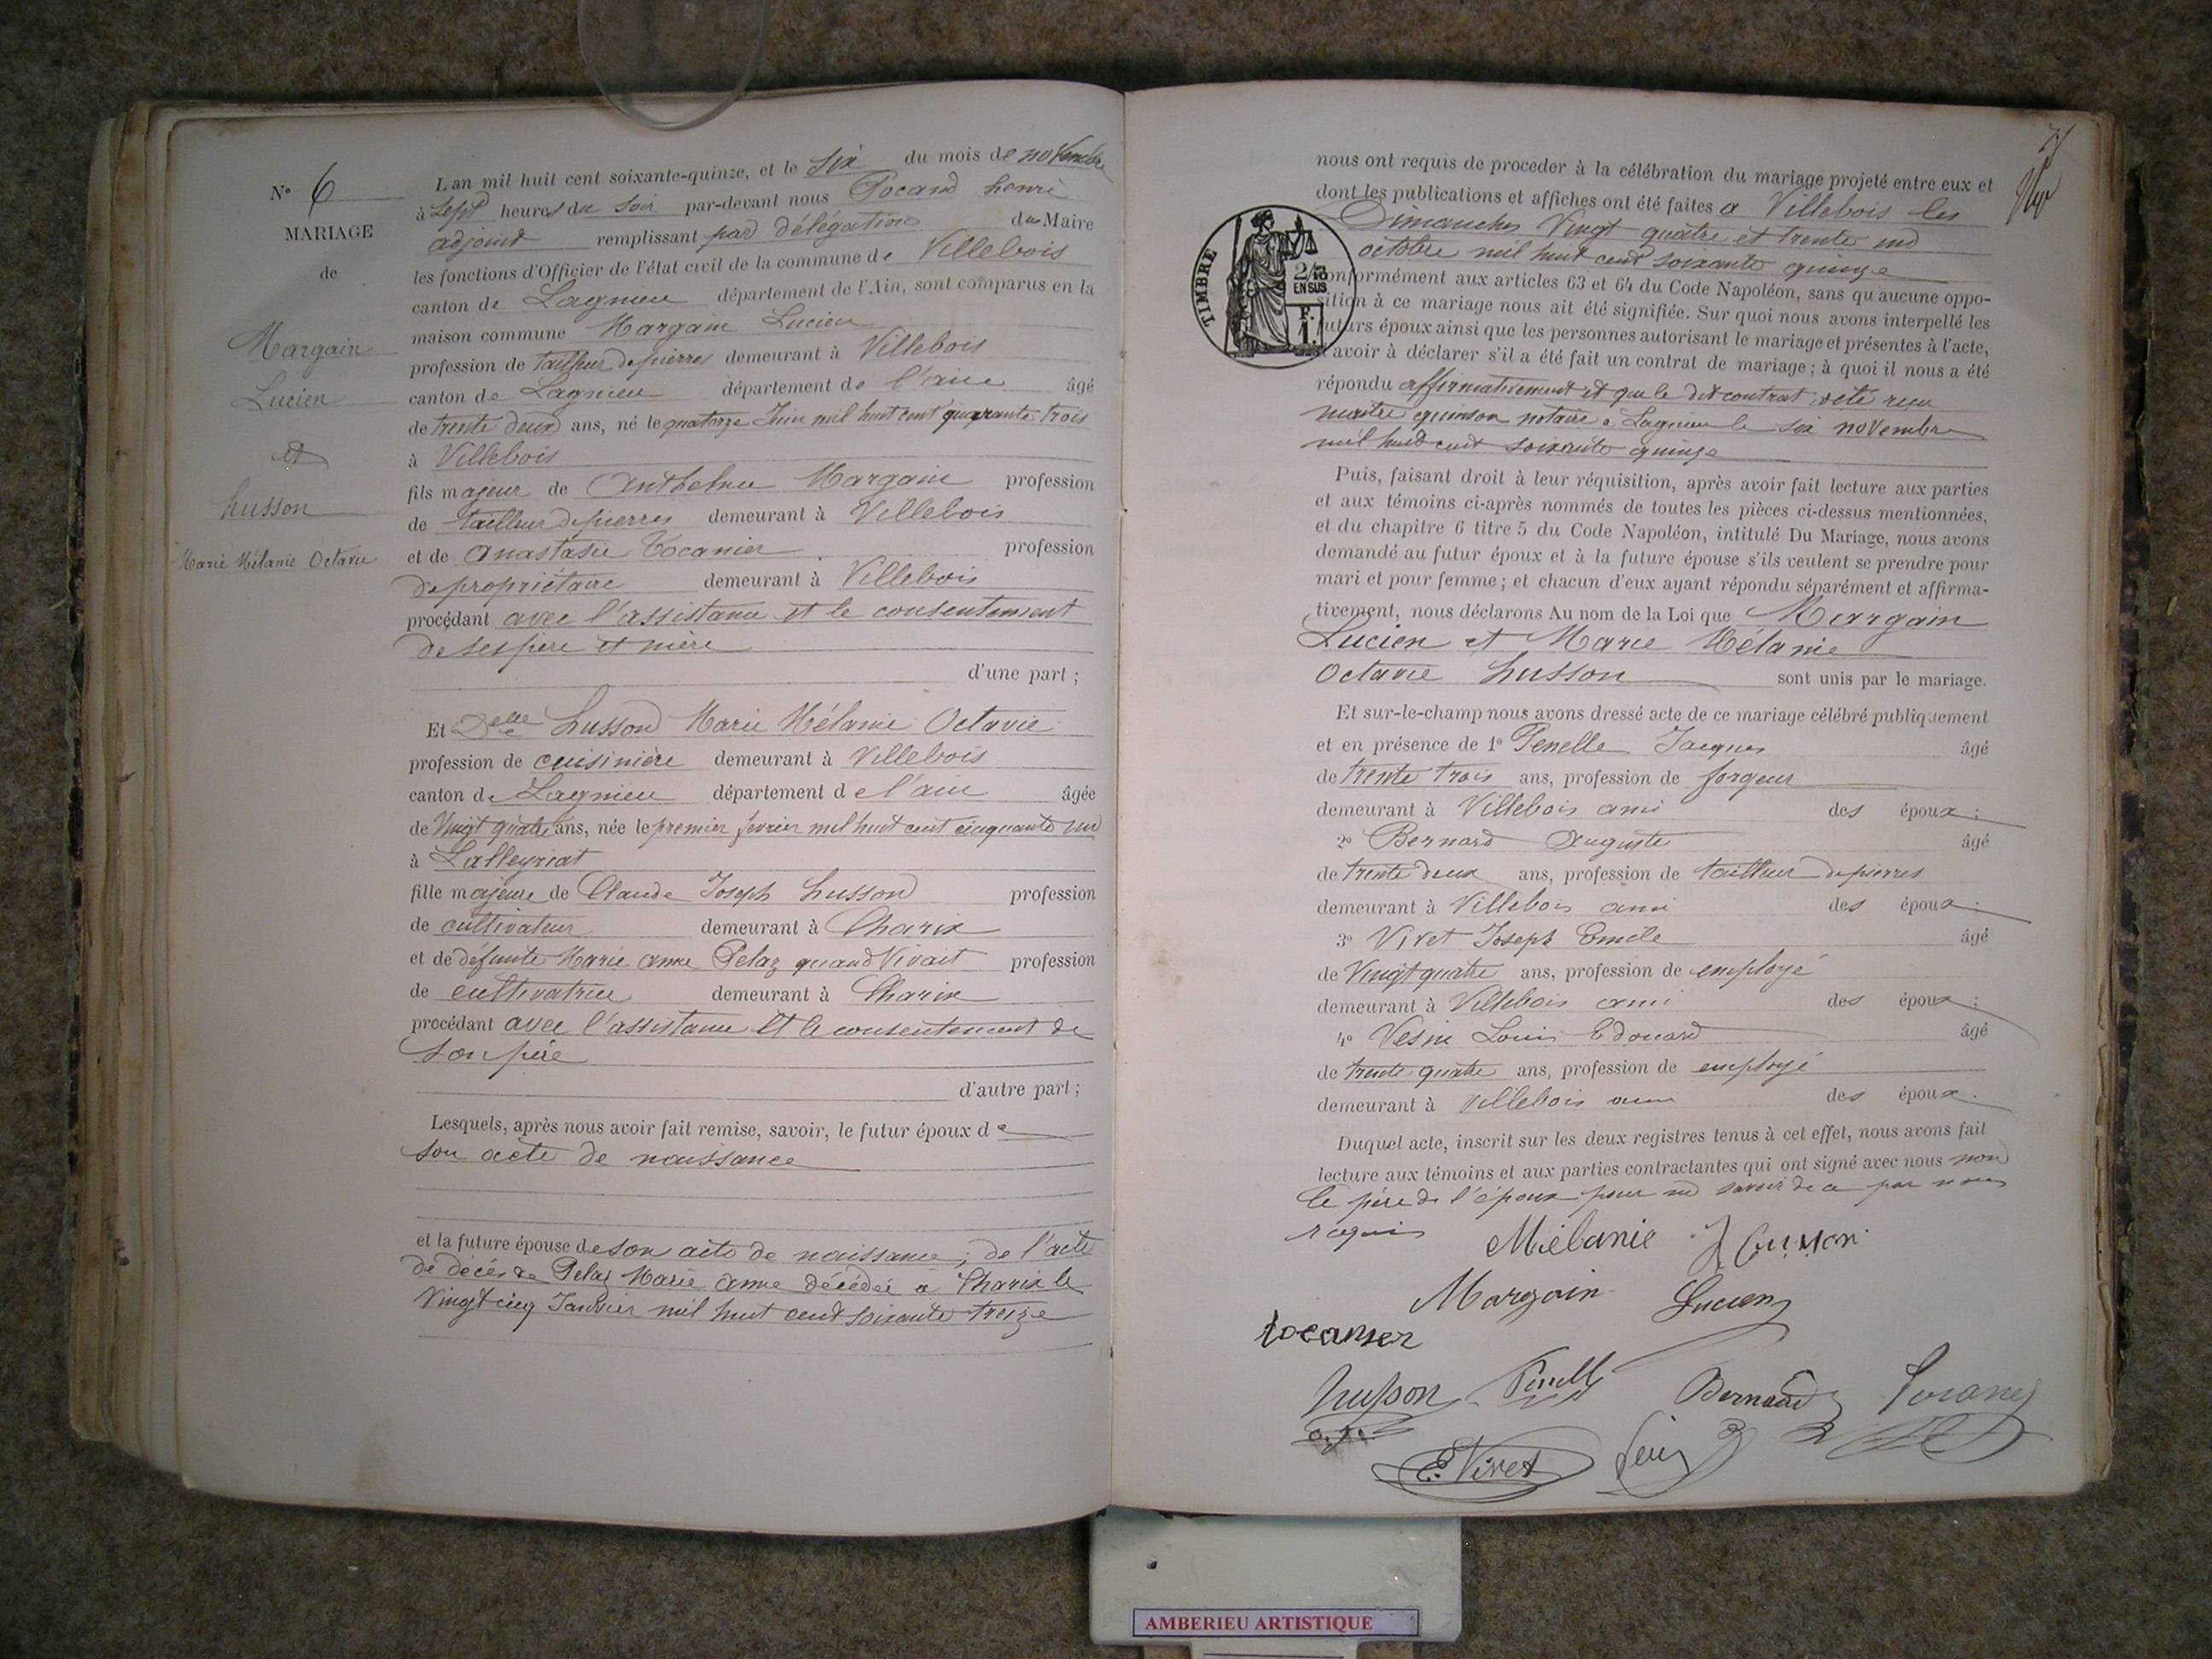 N° 6
MARIAGE
de
Margain
Lucien
et
husson
Marie Mélanie Octavie
L'an mil huit cent soixante-quinze, et le six du mois de novembre
à sept heures du soir par-devant nous Pocard henri
adjoint remplissant par délégation du Maire
les fonctions d'Officier de l'état civil de la commune de Villebois
canton de Lagnieu département de l'Ain, sont comparus en la
maison commune Margain Lucien
profession de tailleur de pierres demeurant à Villebois
canton de Lagnieu département de l'ain âgé
de trente deux ans, né le quatorze Juin mil huit cent quarante trois
à Villebois
fils majeur de Anthelme Margain profession
de tailleur de pierres demeurant à Villebois
et de Anastasie Tocanier profession
de propriétaire demeurant à Villebois
procédant avec l'assistance et le consentement
de ses père et mère
d'une part ;
Et Delle husson Marie Mélanie Octavie
profession de cuisinière demeurant à Villebois
canton de Lagnieu département de l'ain âgée
de Vingt quatre ans, née le premier fevrier mil huit cent cinquante un
à Lalleyriat
fille majeure de Claude Joseph husson profession
de cultivateur demeurant à Charix
et de défunte Marie anne Pelaz quand Vivait profession
de cultivatrice demeurant à Charix
procédant avec l'assistance et le consentement de
son père
d'autre part ;
Lesquels, après nous avoir fait remise, savoir, le futur époux de
son acte de naissance
et la future épouse de son acte de naissance ; de l'acte
de décès de Pelaz Marie anne décédée à Charix le
Vingt cinq Janvier mil huit cent soixante treize
nous ont requis de proceder à la célébration du mariage projeté entre eux et
dont les publications et affiches ont été faites a Villebois les
Dimanches Vingt quatre et trente un
octobre mil huit cent soixante quinze
TIMBRE
2/10
EN SUS
F.
1.
conformément aux articles 63 et 64 du Code Napoléon, sans qu'aucune oppo-
sition à ce mariage nous ait été signifiée. Sur quoi nous avons interpellé les
futurs époux ainsi que les personnes autorisant le mariage et présentes à l'acte,
d'avoir à déclarer s'il a été fait un contrat de mariage ; à quoi il nous a été
répondu affirmativement et que le dit contrat a été reçu
maitre quinson notaire a Lagnieu le six novembre
mil huit cent soixante quinze
Puis, faisant droit à leur réquisition, après avoir fait lecture aux parties
et aux témoins ci-après nommés de toutes les pièces ci-dessus mentionnées,
et du chapitre 6 titre 5 du Code Napoléon, intitulé Du Mariage, nous avons
demandé au futur époux et à la future épouse s'ils veulent se prendre pour
mari et pour femme ; et chacun d'eux ayant répondu séparément et affirma-
tivement, nous déclarons Au nom de la Loi que Margain
Lucien et Marie Mélanie
Octavie husson sont unis par le mariage.
Et sur-le-champ nous avons dressé acte de ce mariage célébré publiquement
et en présence de 1° Penelle Jacques âgé
de trente trois ans, profession de forgeur
demeurant à Villebois ami des époux ;
2° Bernard Auguste âgé
de trente deux ans, profession de tailleur de pierres
demeurant à Villebois ami des époux ;
3° Vivet Joseph Emile âgé
de Vingt quatre ans, profession de employé
demeurant à Villebois ami des époux ;
4° Vesin Louis Edouard âgé
de trente quatre ans, profession de employé
demeurant à Villebois ami des époux.
Duquel acte, inscrit sur les deux registres tenus à cet effet, nous avons fait
lecture aux témoins et aux parties contractantes qui ont signé avec nous non
le père de l'époux pour ne savoir de ce par nous
requis
Mélanie husson
Margain Lucien
tocanier
husson Penelle Bernard
E. Vivet
AMBERIEU ARTISTIQUE